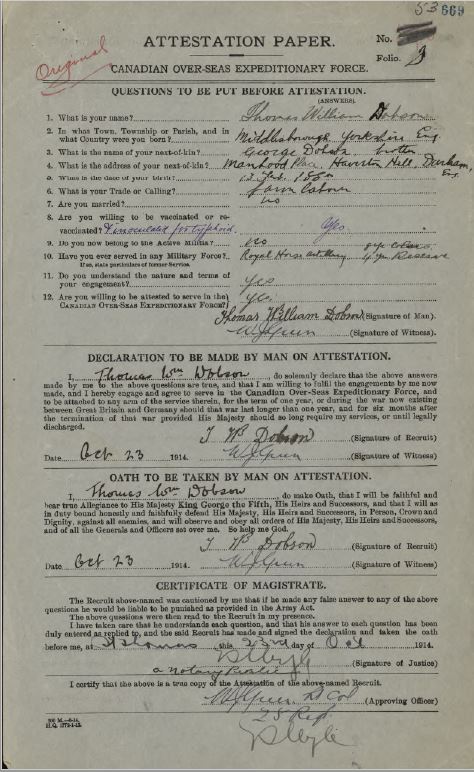 53 669
ATTESTATION PAPER.
No.
Folio. 3
Original
CANADIAN OVER-SEAS EXPEDITIONARY FORCE.
QUESTIONS TO BE PUT BEFORE ATTESTATION.
(ANSWERS).
1. What is your name? Thomas William Dobson
2. In what Town, Township or Parish, and in what Country were you born? Middlesborough, Yorkshire Eng.
3. What is the name of your next-of-kin? George Dobson brother
4. What is the address of your next-of-kin? Haverton Hill, Durham, Eng.
5. What is the date of your birth?
6. What is your Trade or Calling? Farm Labour
7. Are you married? No
8. Are you willing to be vaccinated or re-vaccinated? & inoculated for typhoid. Yes.
9. Do you now belong to the Active Militia? No
10. Have you ever served in any Military Force? Royal Horse Artillery Reserve
If so, state particulars of former Service.
11. Do you understand the nature and terms of your engagement? Yes
12. Are you willing to be attested to serve in the CANADIAN OVER-SEAS EXPEDITIONARY FORCE? Yes.
Thomas William Dobson (Signature of Man).
(Signature of Witness).
DECLARATION TO BE MADE BY MAN ON ATTESTATION.
I, Thomas Wm Dobson, do solemnly declare that the above answers
made by me to the above questions are true, and that I am willing to fulfil the engagements by me now
made, and I hereby engage and agree to serve in the Canadian Over-Seas Expeditionary Force, and
to be attached to any arm of the service therein, for the term of one year, or during the war now existing
between Great Britain and Germany should that war last longer than one year, and for six months after
the termination of that war provided His Majesty should so long require my services, or until legally
discharged.
T Wm Dobson (Signature of Recruit)
Date Oct 23 1914. (Signature of Witness)
OATH TO BE TAKEN BY MAN ON ATTESTATION.
I, Thomas Wm Dobson, do make Oath, that I will be faithful and
bear true Allegiance to His Majesty King George the Fifth, His Heirs and Successors, and that I will as
in duty bound honestly and faithfully defend His Majesty, His Heirs and Successors, in Person, Crown and
Dignity, against all enemies, and will observe and obey all orders of His Majesty, His Heirs and Successors,
and of all the Generals and Officers set over me. So help me God.
T Wm Dobson (Signature of Recruit)
Date Oct 23 1914. (Signature of Witness)
CERTIFICATE OF MAGISTRATE.
The Recruit above-named was cautioned by me that if he made any false answer to any of the above
questions he would be liable to be punished as provided in the Army Act.
The above questions were then read to the Recruit in my presence.
I have taken care that he understands each question, and that his answer to each question has been
duly entered as replied to, and the said Recruit has made and signed the declaration and taken the oath
before me, at St Thomas this 23rd day of Oct 1914.
(Signature of Justice)
a Notary Public
I certify that the above is a true copy of the Attestation of the above-named Recruit.
Lt Col (Approving Officer)
25 Reg.